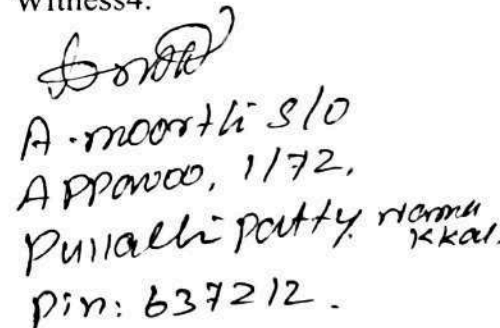 Witness4:
A. moorthi S/O
APPavoo, 1/72,
Pullalli patty. Namakkal.
Pin: 637212.